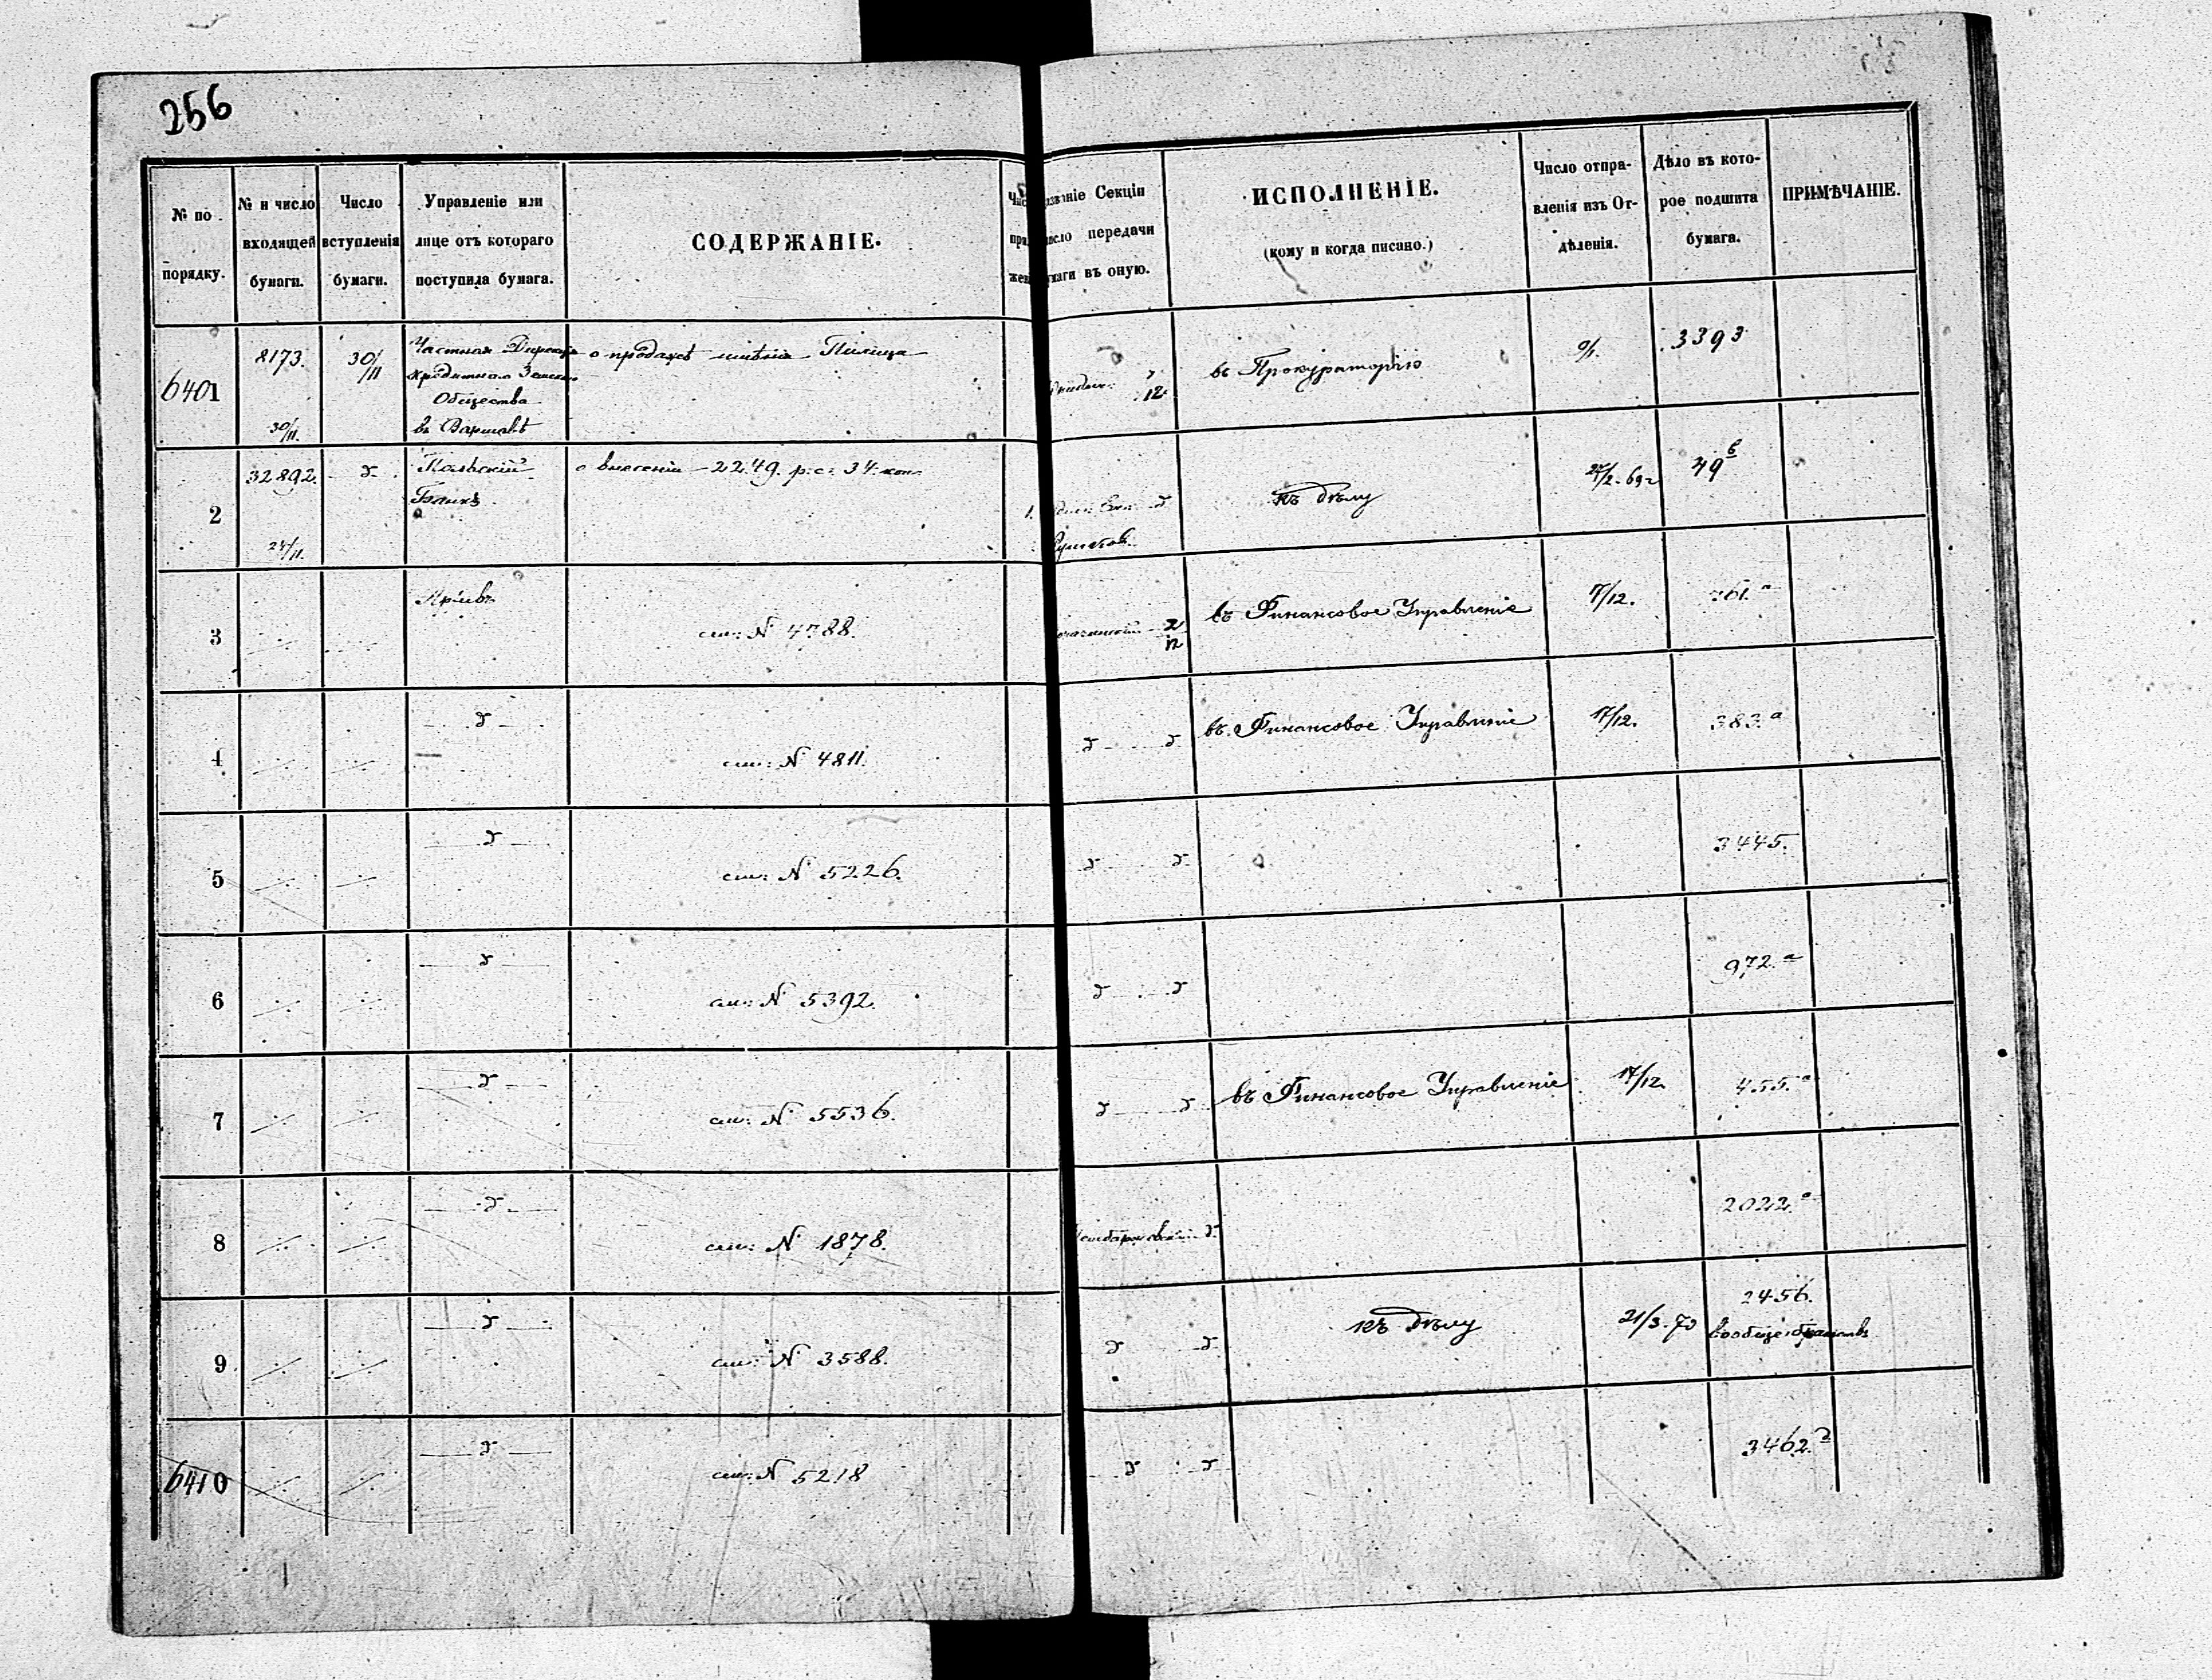 256
№ по порядку.
№ и число входящей бумаги.
Число вступленія бумаги.
Управленіе или лице отъ котораго поступила бумага.
СОДЕРЖАНІЕ.
Секціи
передачи
въ оную.
ИСПОЛНЕНІЕ.
(кому и когда писано.)
Число отправленія изъ Отдѣленія.
Дѣло въ которое подшита бумага.
ПРИМѢЧАНІЕ.
6401
8173.
30/11.
30/11
Частная Дирекція
Кредитнаго Земск.
Общества
въ Варшавѣ
о продажѣ имѣнія Пилица
12.
въ Прокураторію
3393
2
32892.
24/11.
Польскій
Банкъ
о внесеніи 2249. р. с. 34. коп.
1.
къ дѣлу
49
3
Архивъ
см: № 4788.
2/12
въ Финансовое Управленіе
17/12.
761. а
4
см: № 4811.
въ Финансовое Управленіе
17/12.
383. а
5
см: № 5226.
3445.
6
см: № 5392.
972. а
7
см: № 5536.
въ Финансовое Управленіе
17/12.
455. а
8
см: № 1878.
2022. а
9
см: № 3588.
къ дѣлу
21/3. 70
2456.
6410
см: № 5218
3462.